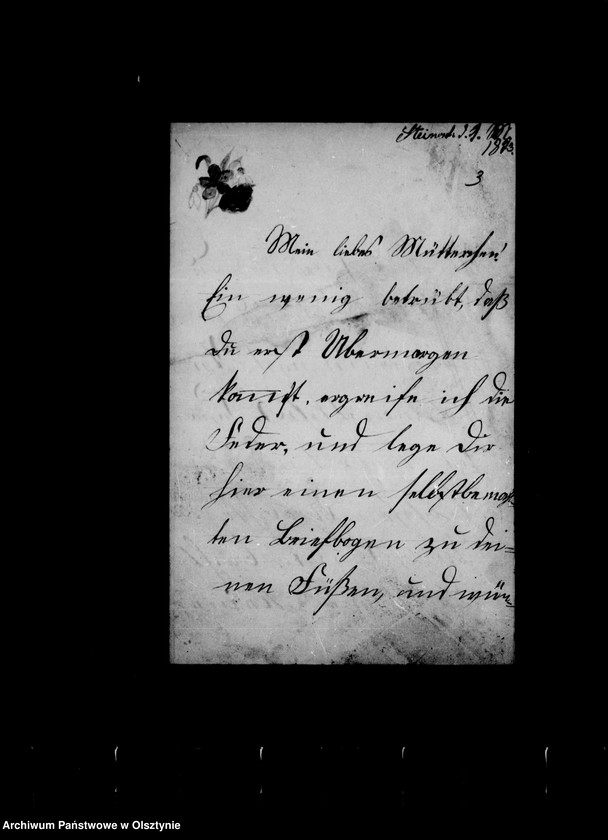 Steinort d. 1.
3
Mein liebes Mütterchen!
Ein wenig betrübt, daß
du erst Übermorgen
kommst, ergreife ich die
Feder, und lege Dir
hier einen selbstbemal-
ten Briefbogen zu dei=
nen Füßen, und wün=
Archiwum Państwowe w Olsztynie